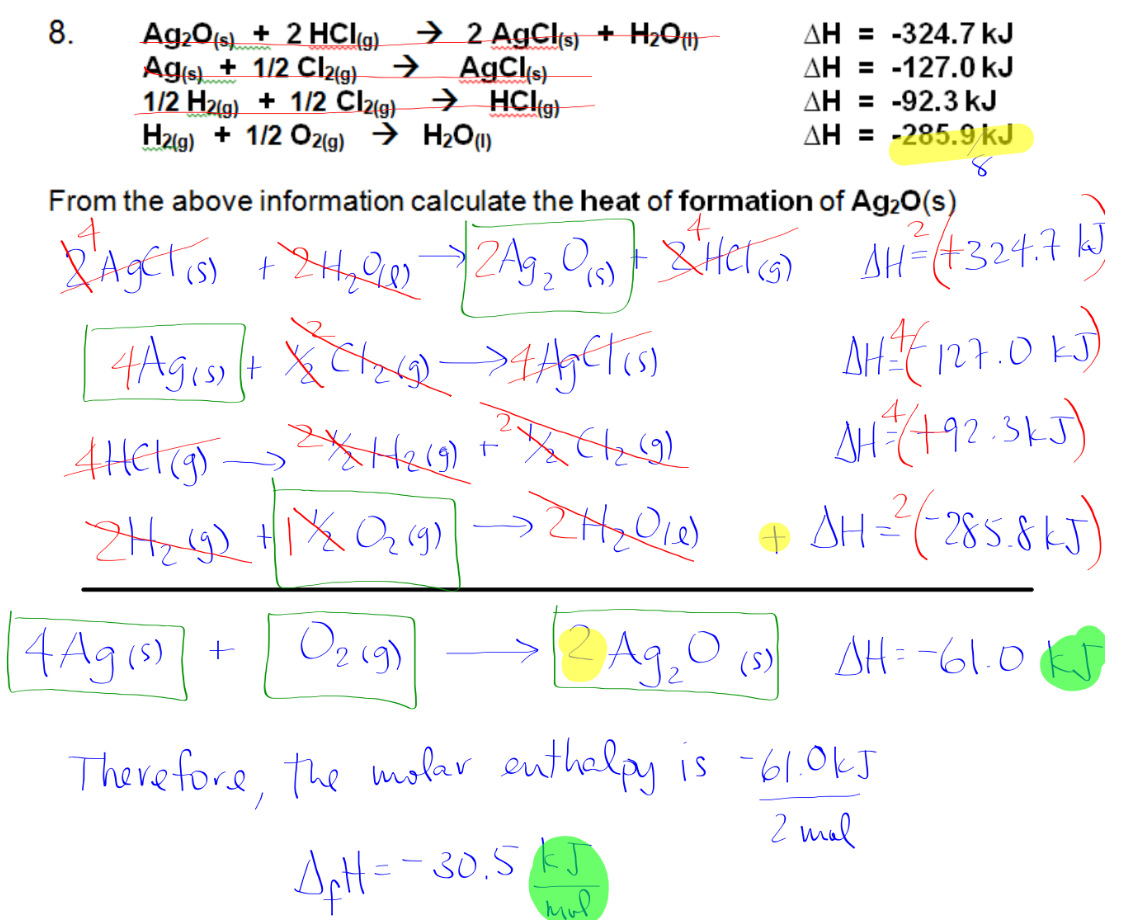 8. Ag₂O(s) + 2 HCl(g) → 2 AgCl(s) + H₂O(l) ΔH = -324.7 kJ
Ag(s) + 1/2 Cl₂(g) → AgCl(s) ΔH = -127.0 kJ
1/2 H₂(g) + 1/2 Cl₂(g) → HCl(g) ΔH = -92.3 kJ
H₂(g) + 1/2 O₂(g) → H₂O(l) ΔH = -285.9 kJ
8
From the above information calculate the heat of formation of Ag₂O(s)
4 2 AgCl(s) + 2H₂O(l) → 2Ag₂O(s) + 4 2 HCl(g) ΔH = 2(+324.7 kJ)
4Ag(s) + 2 ½ Cl₂(g) → 4AgCl(s) ΔH = 4(-127.0 kJ)
4HCl(g) → 2 ½ H₂(g) + 2 ½ Cl₂(g) ΔH = 4(+92.3 kJ)
2H₂(g) + 1 ½ O₂(g) → 2H₂O(l) + ΔH = 2(-285.8 kJ)
4Ag(s) + O₂(g) → 2Ag₂O(s) ΔH = -61.0 kJ
Therefore, the molar enthalpy is -61.0 kJ
2 mol
ΔfH = -30.5 kJ
mol